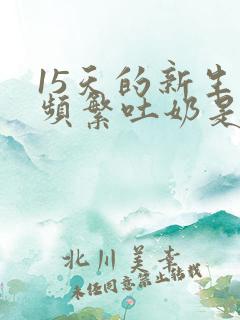 15天的新生
频繁吐奶是
北川美幸
未经同意禁止转载